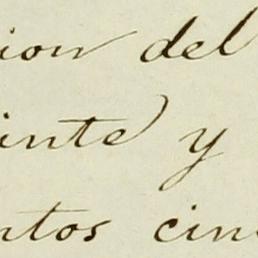 ion del
inte y
ntos cin